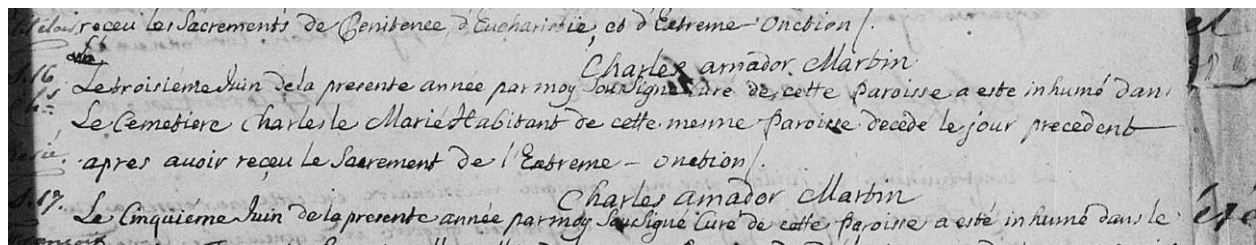 receu les Sacrements de Penitence, d'Eucharistie, et d'Extreme-Onction/.
Charles amador Martin
S.16. Le troisieme Juin de la presente année par moy Sousigné Curé de cette Paroisse a esté inhumé dans
Le Cemetiere Charles le Marié Habitant de cette mesme Paroisse decedé le jour precedent
apres avoir reçeu le Sacrement de l'Extreme-onction/.
Charles amador Martin
S.17. Le Cinquieme Juin de la presente année par moy Sousigné Curé de cette Paroisse a esté inhumé dans le